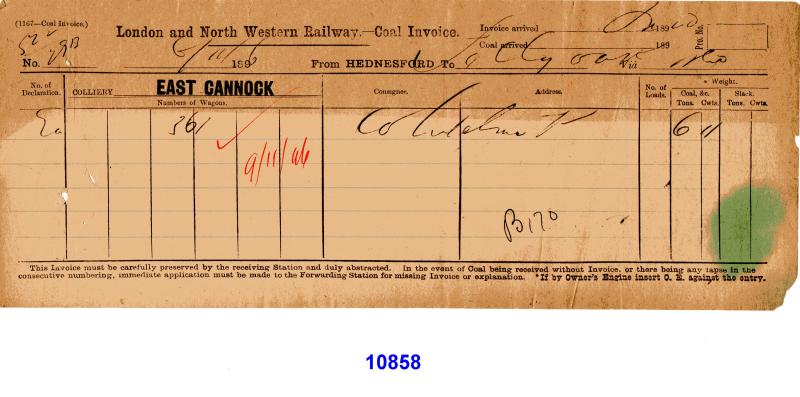 (1167—Coal Invoice.)
London and North Western Railway.—Coal Invoice.
Invoice arrived 189
Coal arrived 189
Pro. No.
No. 6/11/ 1896 From HEDNESFORD To Via
No. of Declaration.
COLLIERY EAST CANNOCK
Numbers of Wagons.
Consignee.
Address.
No. of Loads.
* Weight.
Coal, &c. Slack.
Tons. Cwts. Tons. Cwts.
361 6 11
9/11/96
B170
This Invoice must be carefully preserved by the receiving Station and duly abstracted. In the event of Coal being received without Invoice, or there being any lapse in the
consecutive numbering, immediate application must be made to the Forwarding Station for missing Invoice or explanation. *If by Owner's Engine insert O. E. against the entry.
10858